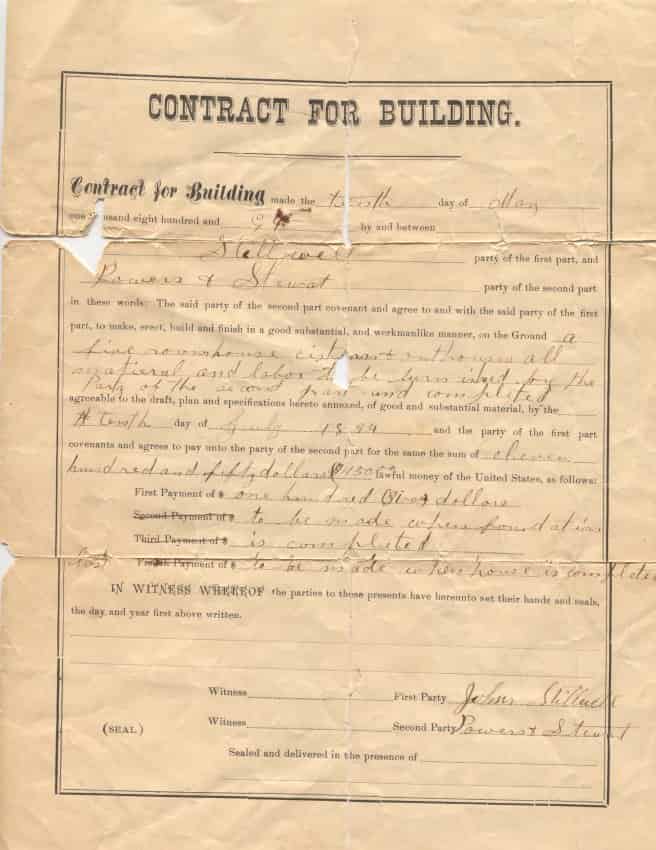 CONTRACT FOR BUILDING.
Contract for Building made the tenth day of May
one thousand eight hundred and by and between
Stillwell party of the first part, and
Powers & Stewat party of the second part
in these words: The said party of the second part covenant and agree to and with the said party of the first
part, to make, erect, build and finish in a good substantial, and workmanlike manner, on the Ground a
five roomhouse cistern & outhouses all
matieral and labor to be furnised by the
Party of the second part and completed
agreeable to the draft, plan and specifications hereto annexed, of good and substantial material, by the
tenth day of July 1899 and the party of the first part
covenants and agrees to pay unto the party of the second part for the same the sum of eleven
hundred and fifty dollars lawful money of the United States, as follows:
First Payment of $ one hundred dollars
Second Payment of $ to be made when foundation
Third Payment of $ is completed
last Payment of $ to be made when house is completed
IN WITNESS WHEREOF the parties to these presents have hereunto set their hands and seals,
the day and year first above written.
Witness First Party Stillwell
(SEAL) Witness Second Party Powers & Stewat
Sealed and delivered in the presence of